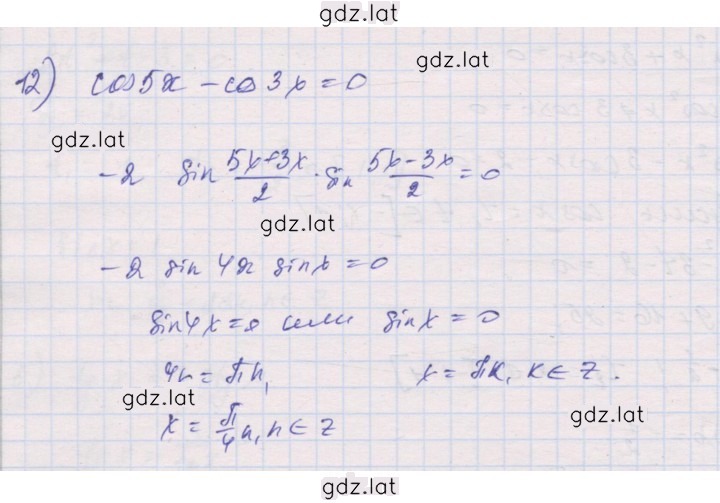 gdz.lat
12) cos5x - cos3x = 0
gdz.lat
gdz.lat
-2 sin (5x+3x)/2 · sin (5x-3x)/2 = 0
gdz.lat
-2 sin 4x sin x = 0
sin4x = 0 или sin x = 0
4x = πn, x = πk, k ∈ Z.
gdz.lat
x = π/4 n, n ∈ Z
gdz.lat
gdz.lat